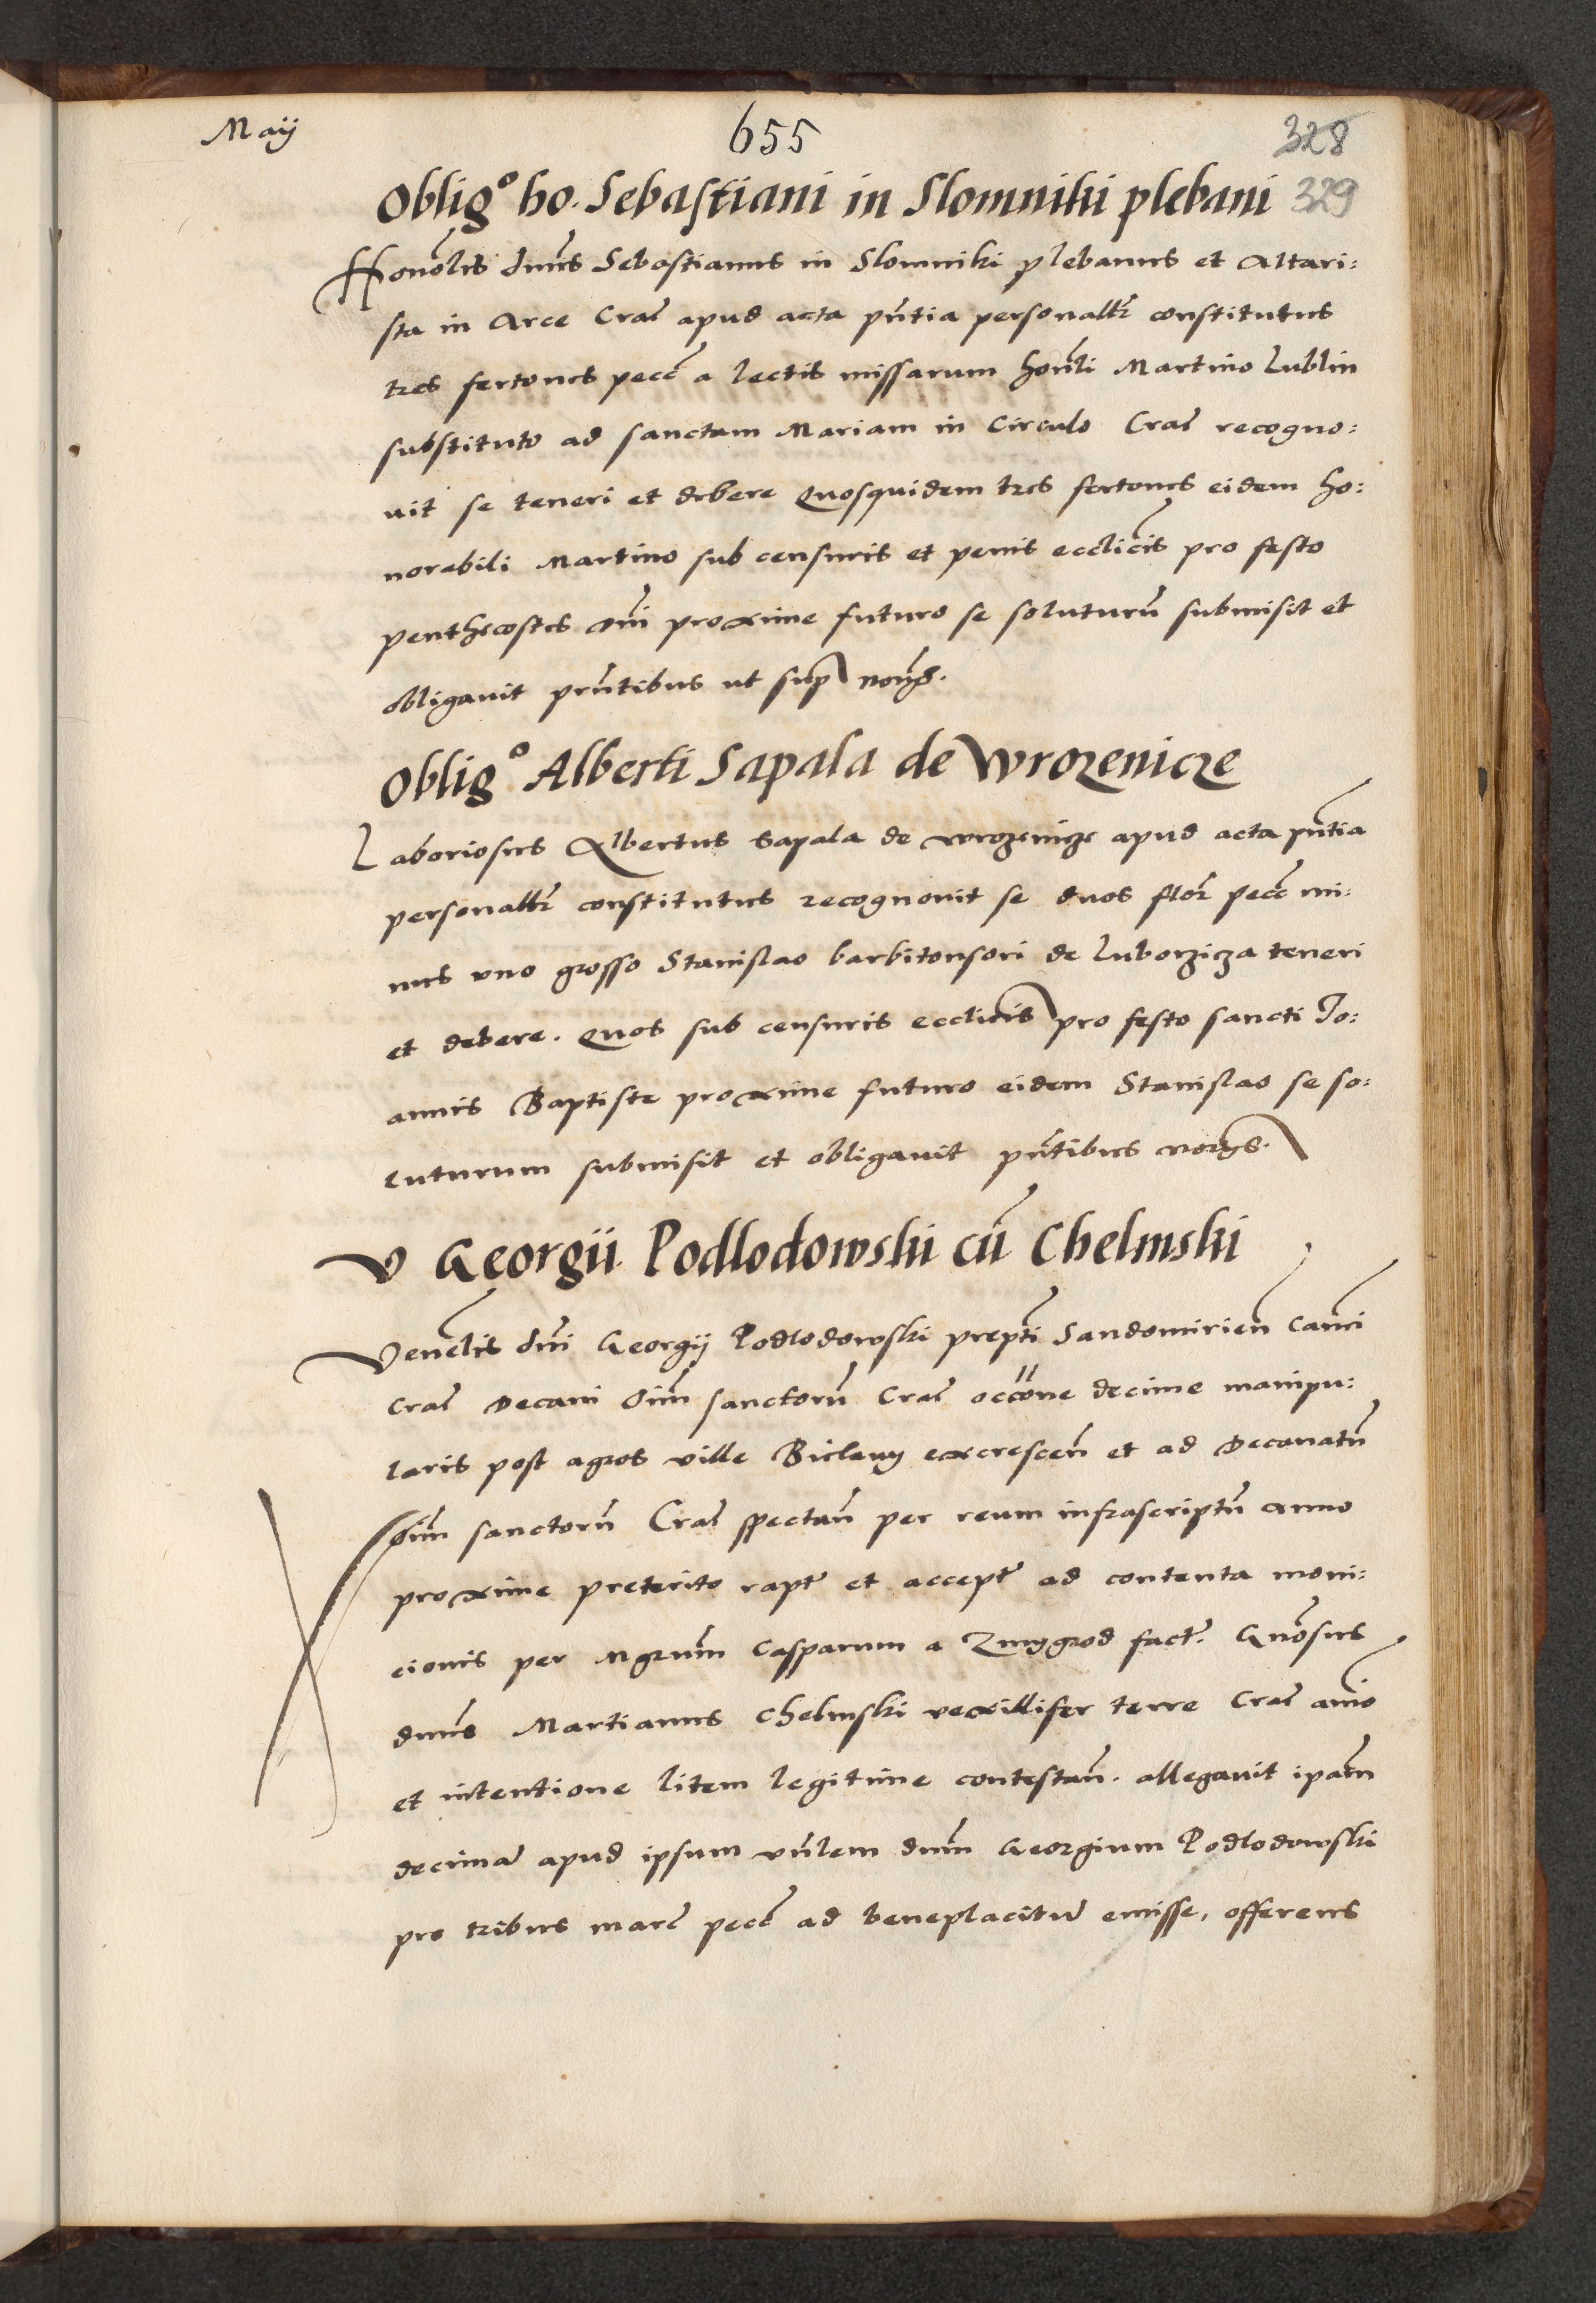 Maij
655
328
Oblig° ho. Sebastiani in Slomniki plebani 329
Honolis dnus Sebastianus in Slomniki plebanus et Altari:
sta in Arce Crac apud acta pntia personalr constitutus
tres fertones pecc a lectis missarum honli Martino Lublin
substituto ad sanctam Mariam in Circulo Crac recogno:
uit se teneri et debere Quosquidem tres fertones eidem ho:
norabili Martino sub censuris et penis ecclicis pro festo
penthecostes oni proxime futuro se soluturu submisit et
obligauit prntibus ut sup
Oblig° Alberti Sapala de Wrozenicze
Laboriosus Albertus Sapala de Wrozenicze apud acta pntia
personalr constitutus recognouit se duos flor pecc mi:
nus vno grosso Stanislao barbitonsori de Luborzicza teneri
et debere. Quos sub censuris ecclicis pro festo sancti Jo:
annis Baptiste proxime futuro eidem Stanislao se so:
luturum submisit et obligauit pntibus
V Georgii Podlodowski cu Chelmski
Venelis dni Georgij Podlodowski prepti Sandomirien Canci
Crac Decani Oim sanctoru Crac occone decime manipu:
laris post agros ville Bielany excrescen et ad Decanatu
Oim sanctoru Crac spectan per reum infrascriptu anno
proxime preterito rapt et accept ad contenta moni:
cionis per Mgrum Casparum a Zmygrod fact. Gnosus
dnus Martianus Chelmski vexillifer terre Crac anio
et intentione litem legitime contestan. allegauit ipam
decima apud ipsum vnlem dnm Georgium Podlodowski
pro tribus marc pecc ad beneplacitu emisse, offerens